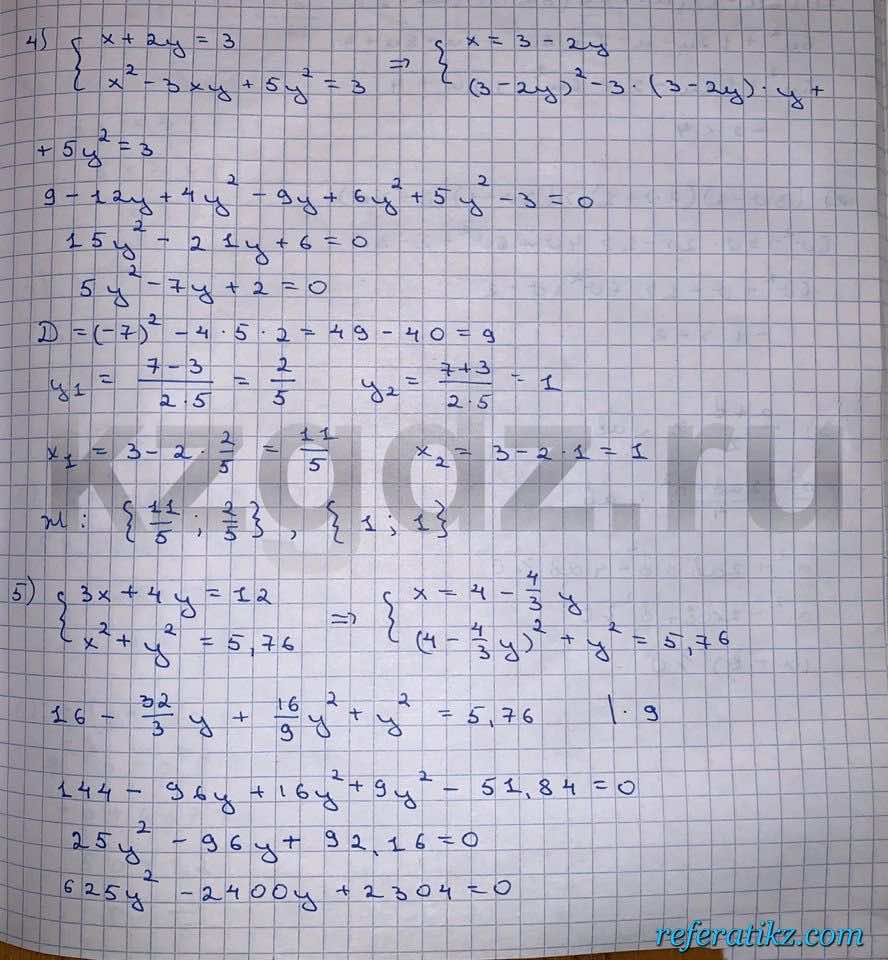 4) { x + 2y = 3 => { x = 3 - 2y
x² - 3xy + 5y² = 3 (3 - 2y)² - 3 · (3 - 2y) · y +
+ 5y² = 3
9 - 12y + 4y² - 9y + 6y² + 5y² - 3 = 0
15y² - 21y + 6 = 0
5y² - 7y + 2 = 0
D = (-7)² - 4 · 5 · 2 = 49 - 40 = 9
y₁ = (7 - 3)/(2·5) = 2/5 y₂ = (7 + 3)/(2·5) = 1
x₁ = 3 - 2 · 2/5 = 11/5 x₂ = 3 - 2 · 1 = 1
: {11/5 ; 2/5}, {1 ; 1}
kzgdz.ru
5) { 3x + 4y = 12 => { x = 4 - 4/3 y
x² + y² = 5,76 (4 - 4/3 y)² + y² = 5,76
16 - 32/3 y + 16/9 y² + y² = 5,76 | · 9
144 - 96y + 16y² + 9y² - 51,84 = 0
25y² - 96y + 92,16 = 0
625y² - 2400y + 2304 = 0
referatikz.com